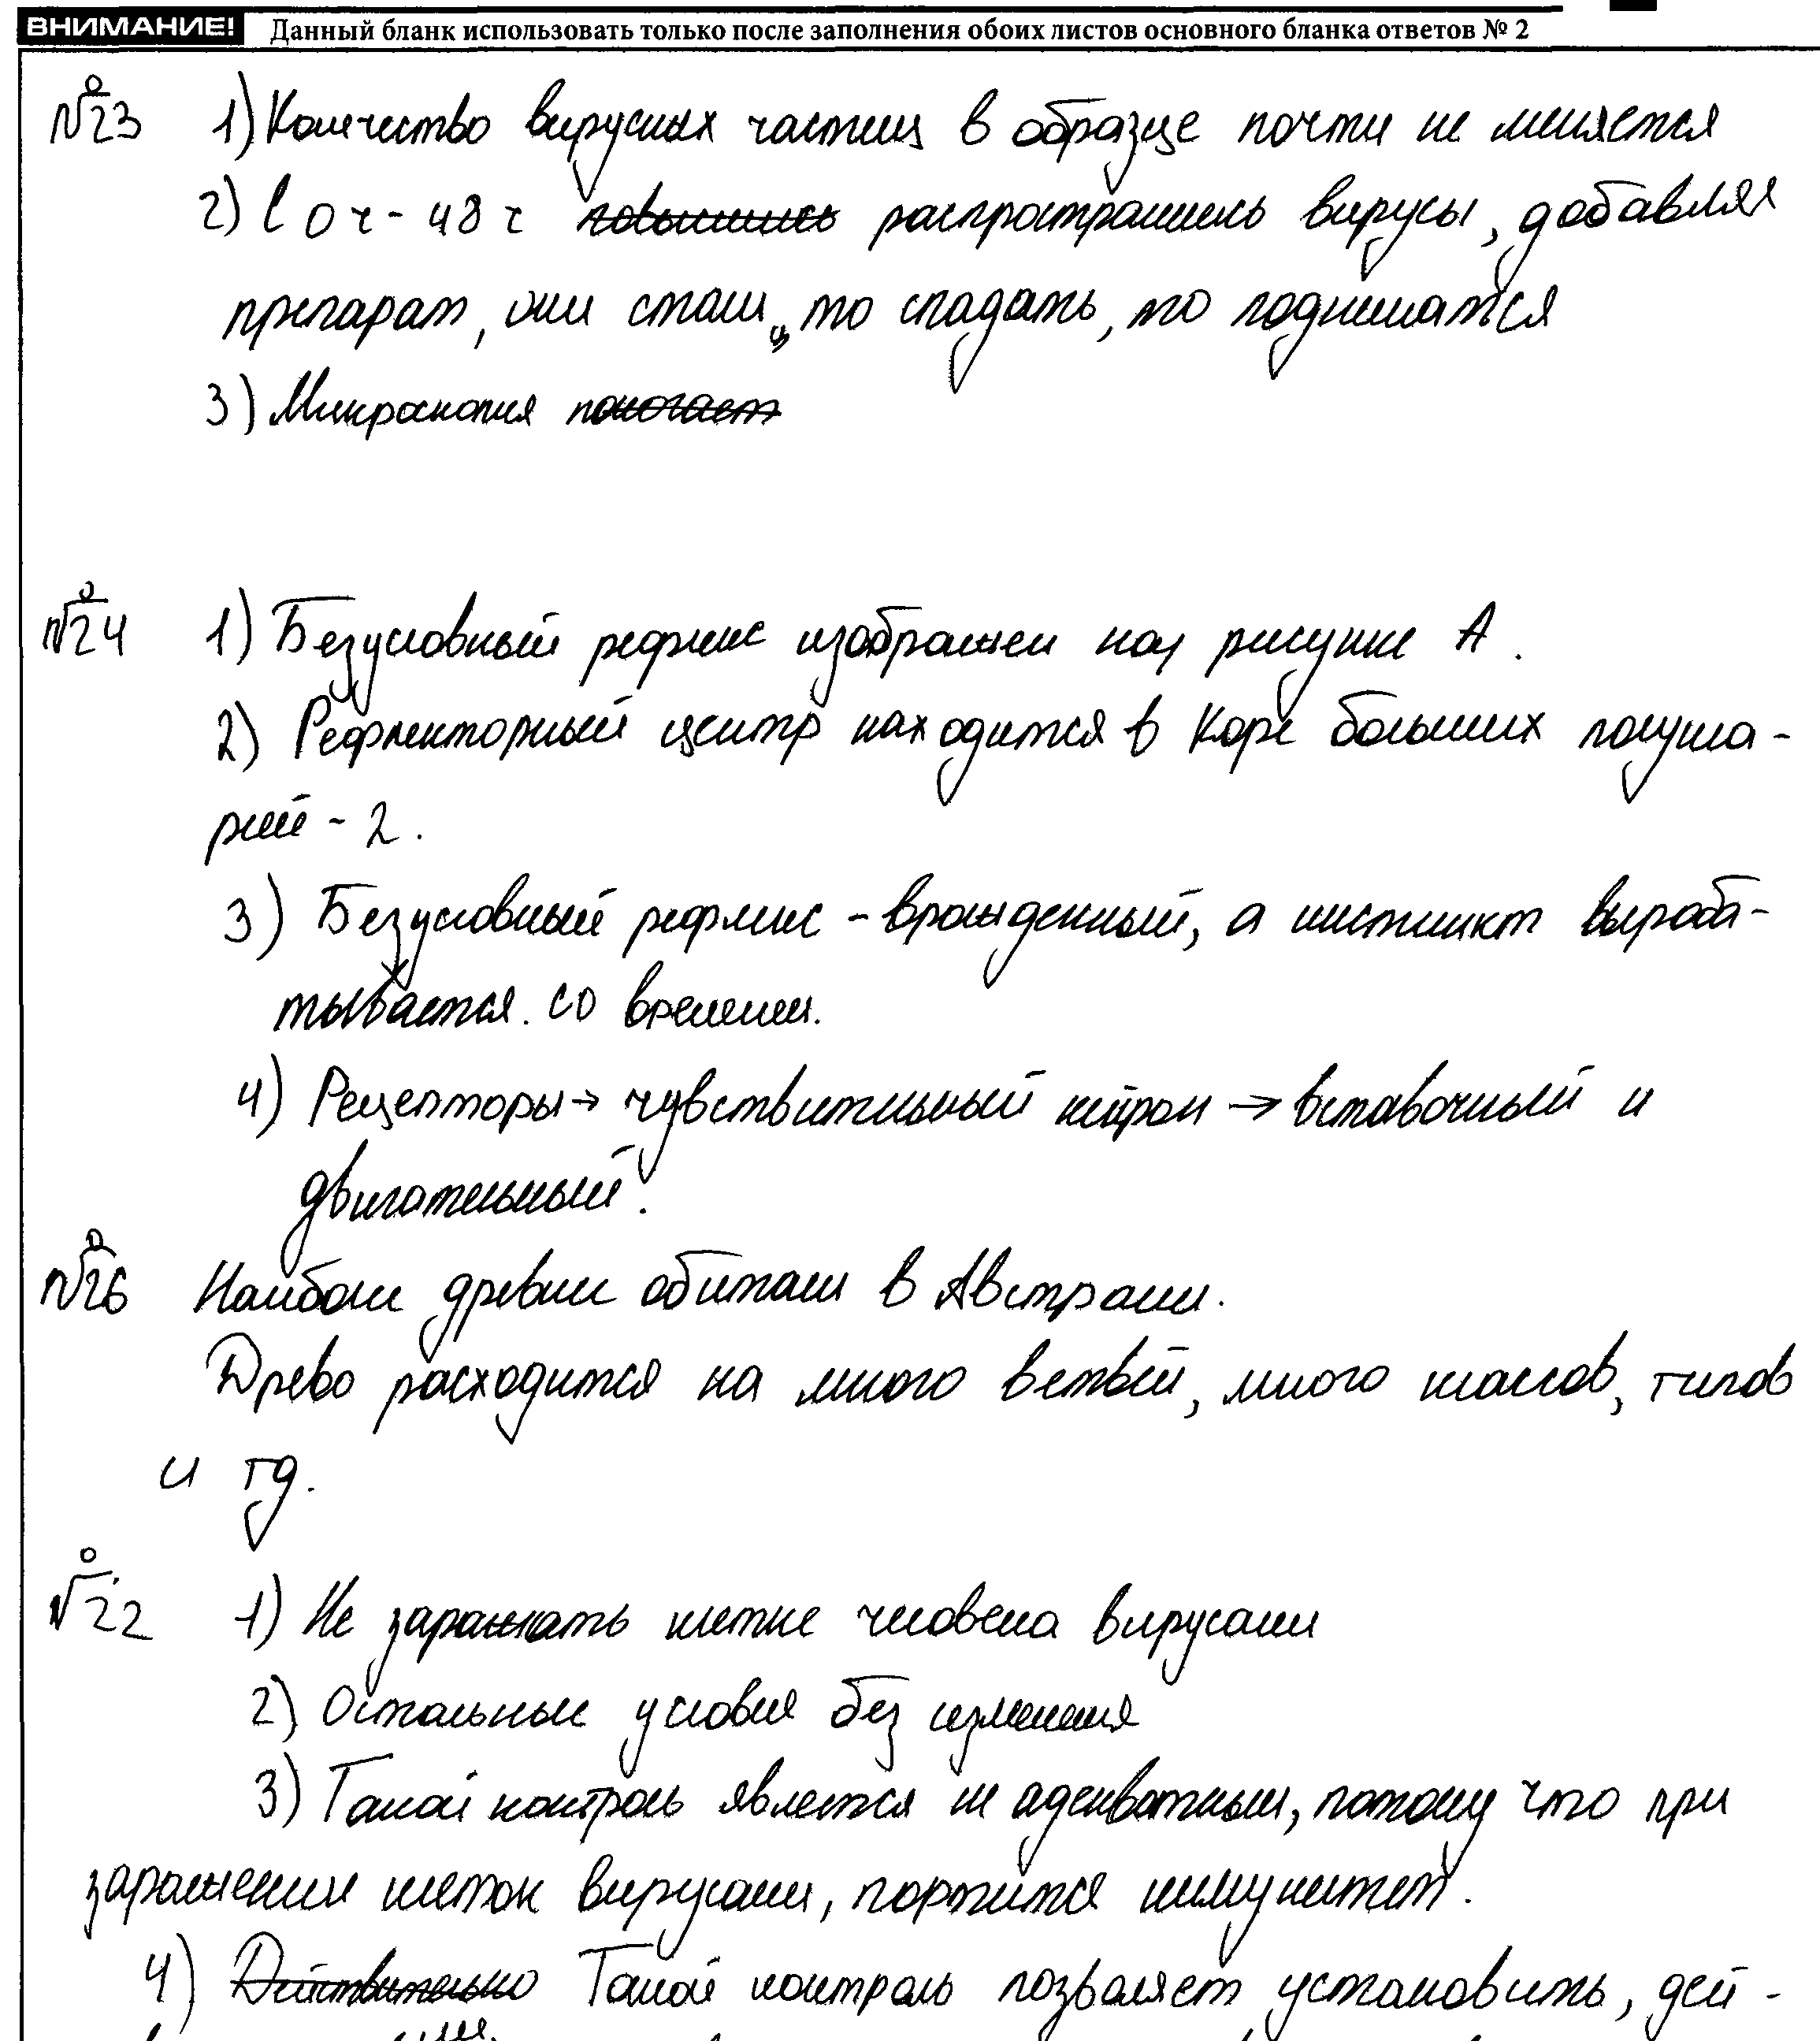 ВНИМАНИЕ! Данный бланк использовать только после заполнения обоих листов основного бланка ответов № 2
№23 1) Количество вирусных частиц в образце почти не меняется
2) С 0ч - 48ч повышились распространились вирусы, добавляя
препарат, они стали, то спадать, то подниматся
3) Микроскопия помогает
№24 1) Безусловный рефлекс изображен на рисунке А.
2) Рефлекторный центр находится в Коре больших полуша-
рий - 2.
3) Безусловный рефлекс - врожденный, а инстинкт выраба-
тывается. со временем.
4) Рецепторы → чувствительный нейрон → вставочный и
двигательный.
№26 Наиболее древние обитали в Австралии.
Древо расходится на много ветвей, много классов, типов
и тд.
№22 1) Не заражать клетке человека вирусами
2) Остальные условия без изменения
3) Такой контроль является не адекватным, потому что при
заражении клеток вирусами, портится иммунитет.
4) Действительно Такой контроль позволяет установить, дей-